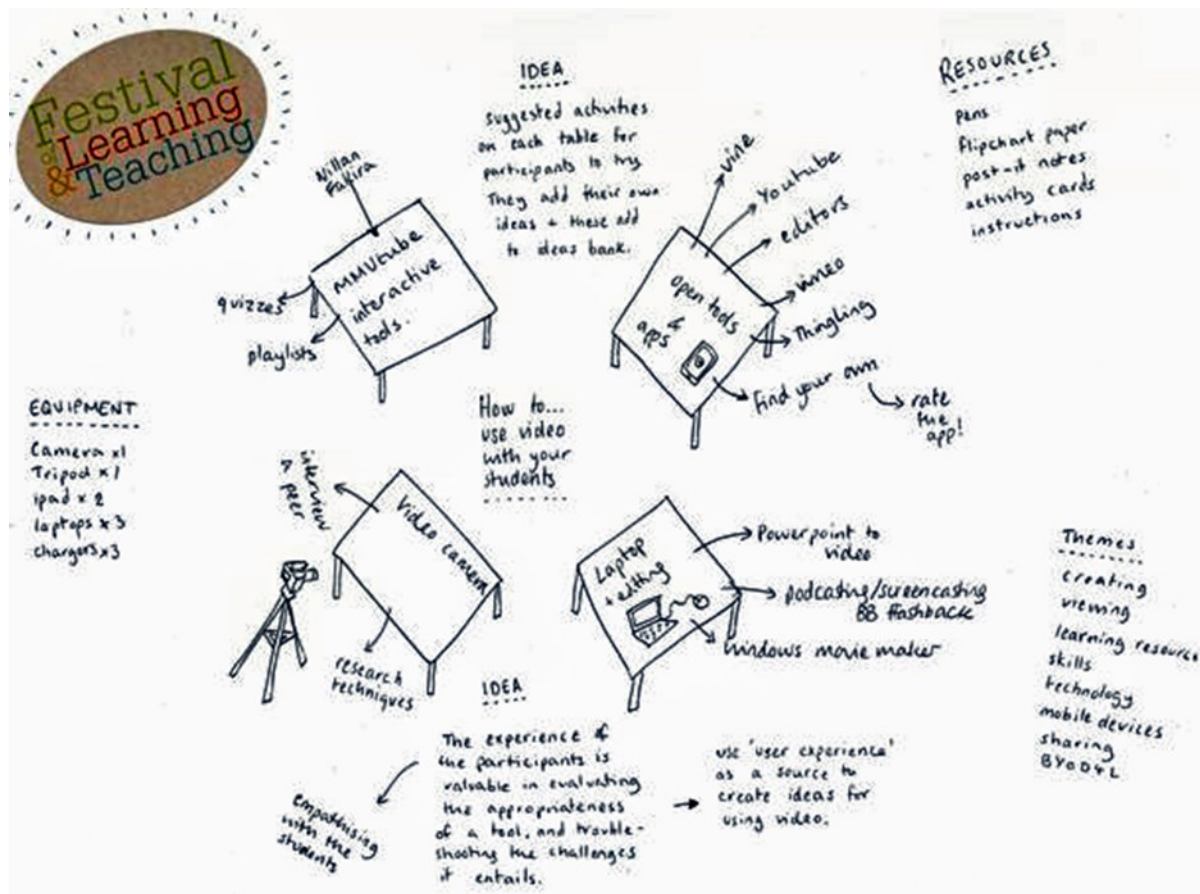 Festival
of Learning
& Teaching
IDEA
suggested activities
on each table for
participants to try
They add their own
ideas + these add
to ideas bank.
RESOURCES
pens
flipchart paper
post-it notes
activity cards
instructions
MMUtube
interactive
tools.
quizzes
playlists
open tools
&
apps
vine
Youtube
editors
vimeo
Thingling
find your own
rate
the
app!
EQUIPMENT
Camera x1
Tripod x1
ipad x 2
laptops x 3
chargers x3
How to...
use video
with your
students
Video camera
interview
a peer
research
techniques
Laptop
+ editing
Powerpoint to
video
podcasting/screencasting
BB flashback
windows movie maker
Themes
creating
viewing
learning resource
skills
technology
mobile devices
sharing
BYOD4L
IDEA
The experience of
the participants is
valuable in evaluating
the appropriateness
of a tool, and trouble-
shooting the challenges
it entails.
empathising
with the
students
use 'user experience'
as a source to
create ideas for
using video.